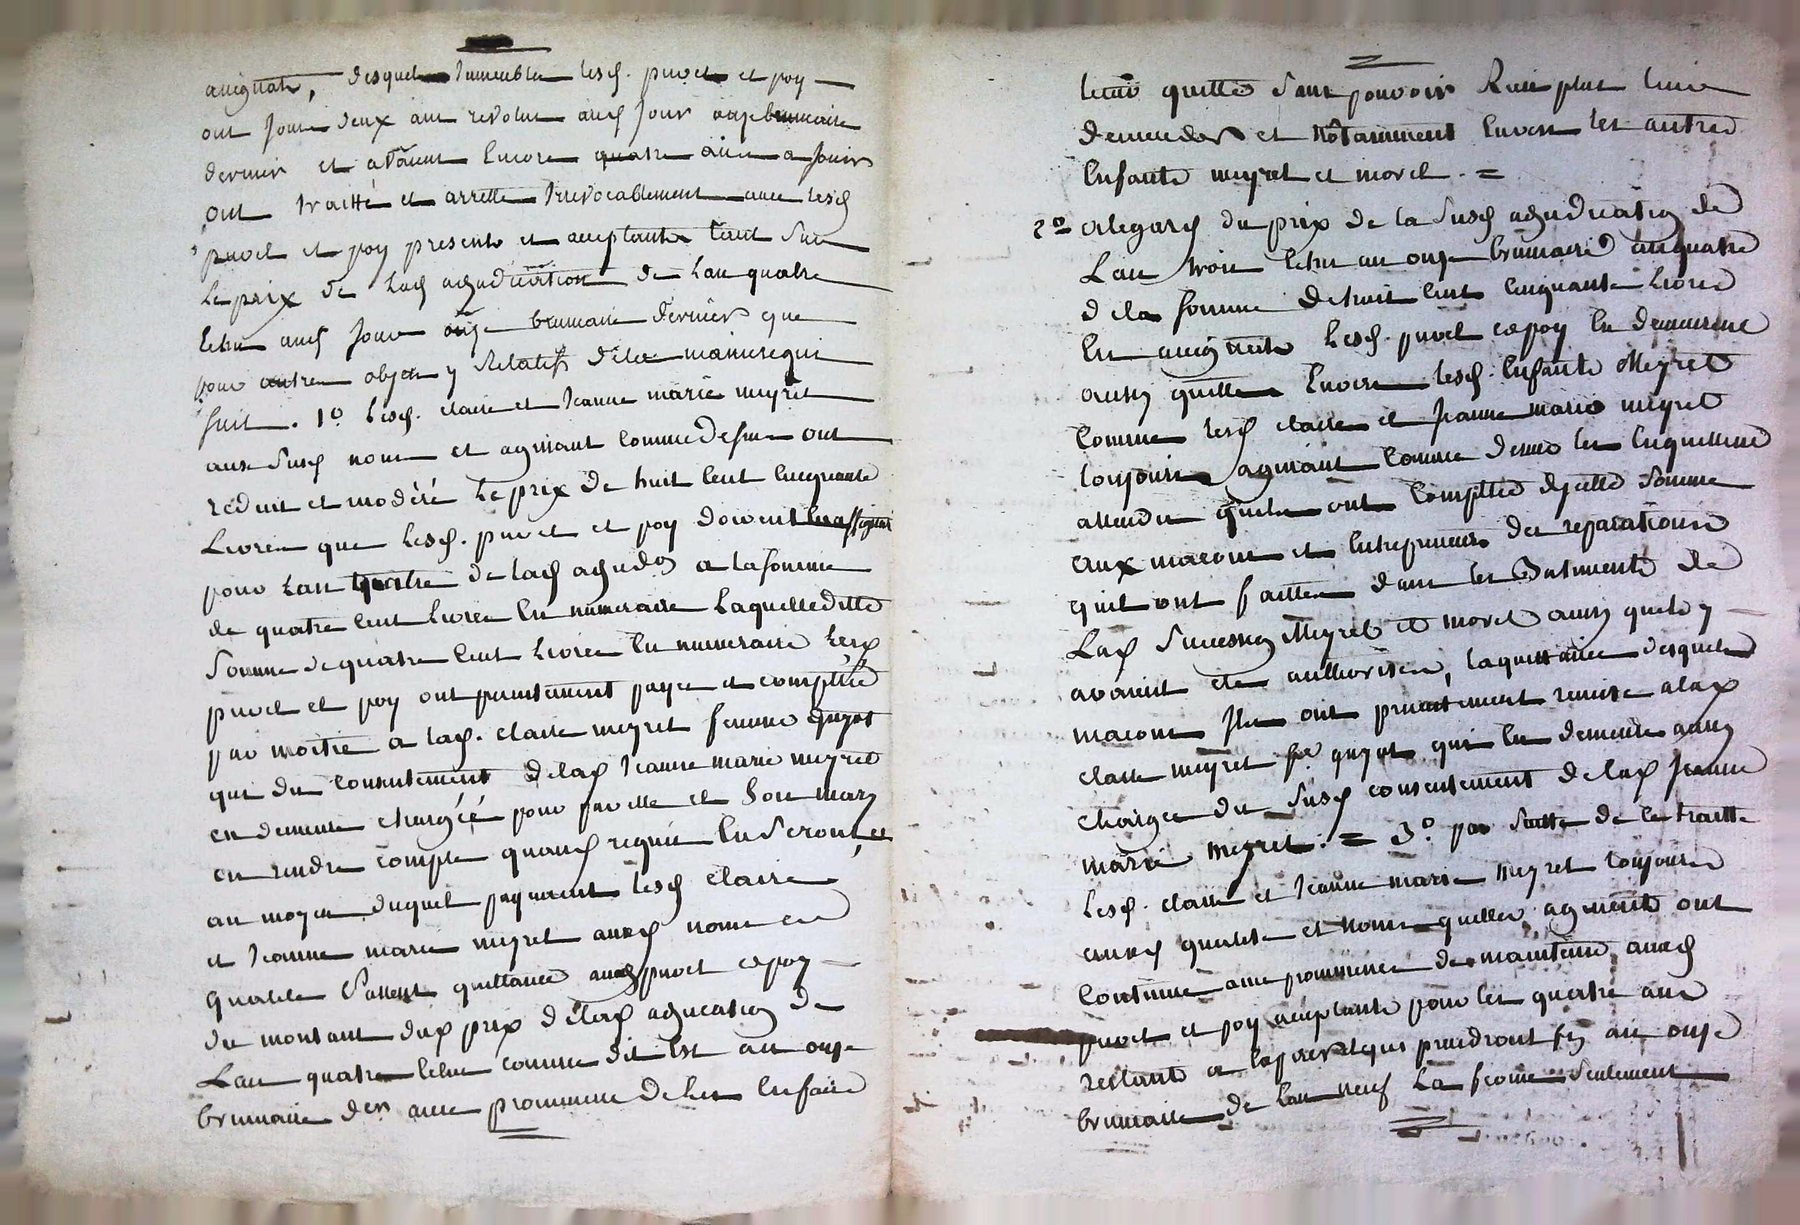 assignats, desquels immeubles lesd. puvel et poy
ont joui deux ans revolus aud jour onze brumaire
dernier et avoient encore quatre ans a jouir
ont traitté et arretté irrevocablement avec lesd
puvel et poy presents et acceptants tant sur
le prix de lad adjudication de lan quatre
echu aud jour onze brumaire dernier que
pour autres objets y relatifs dela maniere qui
suit. 1º lesd. claire et jeanne marie meyret
aux susd noms et agissant comme dessus ont
reduit et modéré le prix de huit cent cinquante
livres que lesd. puvel et poy doivent en assignats
pour lan quatre de lad adjudon a la somme
de quatre cent livres en numeraire laquelle ditte
somme de quatre cent livres en numeraire lesd
puvel et poy ont presentement payée et comptée
par moitié a lad. claire meyret femme guyot
qui du consentement delad jeanne marie meyret
en demeure chargéé pour par elle et son mary
en rendre compte quand requis en seront, et
au moyen duquel payement lesd claire
et jeanne marie meyret auxd noms et
qualités passent quittance auxd puvel et poy
du montant dud prix delad adjucation de
lan quatre echu comme dit est au onze
brumaire der avec promesse de les en faire
tenir quitte sans pouvoir rien plus leur
demender et nôtamment envers les autres
enfants meyret et morel. =
2º alegard du prix de la susd adjudication de
lan trois echu au onze brumaire an quatre
dela somme de huit cent cinquante livres
en assignats lesd. puvel et poy en demeurent
aussy quittes envers lesd. enfants Meyret
comme lesd claire et jeanne marie meyret
toujours agissant comme dessus les en quittent
attendu quils ont comptée dycelle somme
aux macons et entrepreneurs des reparations
quil ont faittes dans les Batiments de
lad succession Meyret et morel ainsy quils y
avoient été authorisés, la quittance desquels
macons ils ont presentement remise alad
claire meyret fe guyot qui en demeure aussy
chargée du susd consentement delad jeanne
marie meyret. = 3º par suitte de ce traitté
lesd. claire et jeanne marie meyret toujours
auxd qualités et noms quelles agissent ont
continué avec promesse de maintenir auxd
puvel et poy acceptants pour les quatre ans
restants a lapsés et qui prendront fin au onze
brumaire de lan neuf la ferme seulement